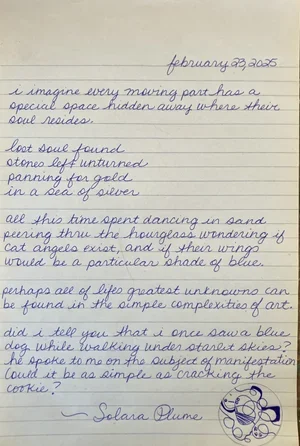 february 23, 2025
i imagine every moving part has a
special space hidden away where their
soul resides.
lost soul found
stones left unturned
panning for gold
in a sea of silver
all this time spent dancing in sand
peering thru the hourglass wondering if
cat angels exist, and if their wings
would be a particular shade of blue.
perhaps all of lifes greatest unknowns can
be found in the simple complexities of art.
did i tell you that i once saw a blue
dog while walking under starlit skies?
he spoke to me on the subject of manifestation
could it be as simple as cracking the
cookie?
~ Solara Plume